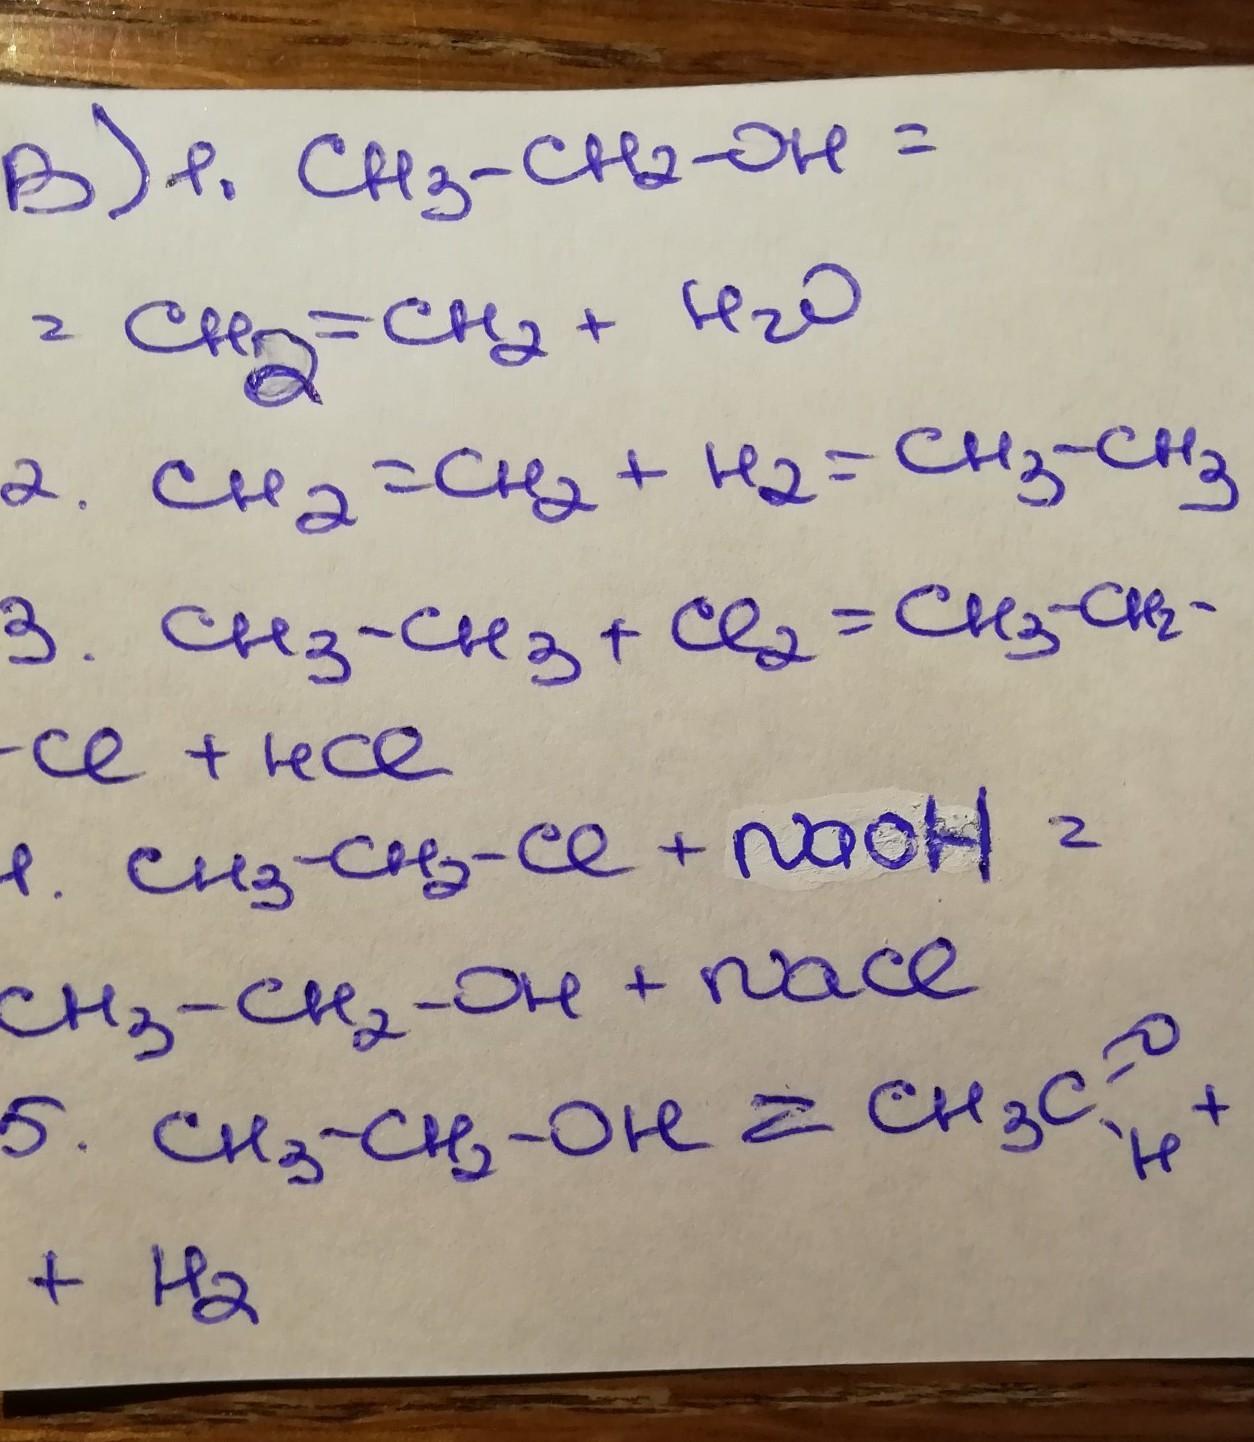 В) 1. CH3-CH2-OH =
= CH2=CH2 + H2O
2. CH2=CH2 + H2 = CH3-CH3
3. CH3-CH3 + Cl2 = CH3-CH2-
-Cl + HCl
1. CH3-CH2-Cl + NaOH =
CH3-CH2-OH + NaCl
5. CH3-CH2-OH = CH3C=O
H +
+ H2